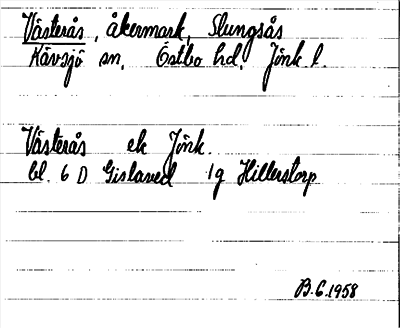 Västerås, åkermark, Slungsås
Kävsjö sn, Östbo hd, Jönk l.
Västerås ek Jönk.
bl. 6 D Gislaved 1g Hillerstorp
B.G.1958